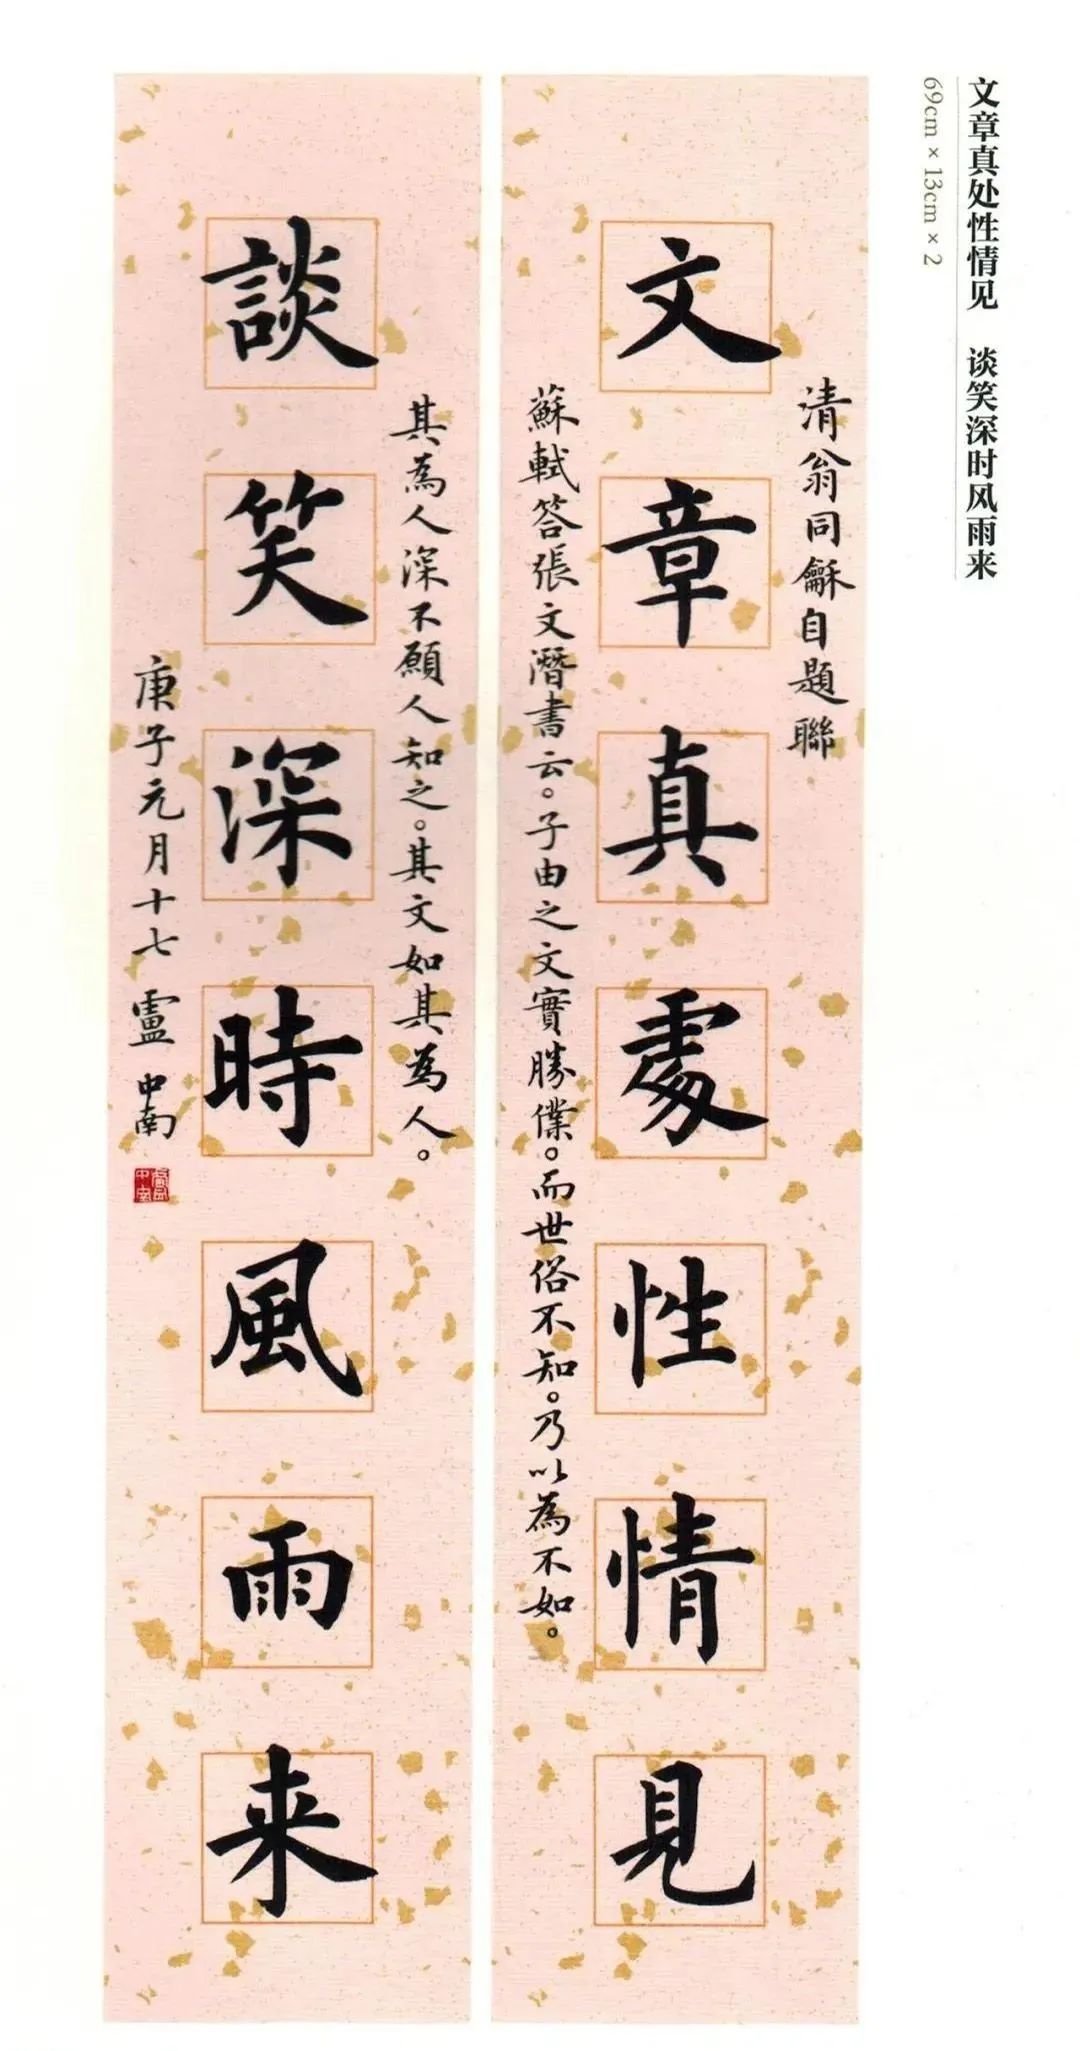 文章真处性情见　谈笑深时风雨来
69cm×13cm×2
清翁同龢自題聯
文章真處性情見
蘇軾答張文潛書云。子由之文實勝僕。而世俗不知。乃以為不如。
其為人深不願人知之。其文如其為人。
談笑深時風雨来
庚子元月十七盧中南